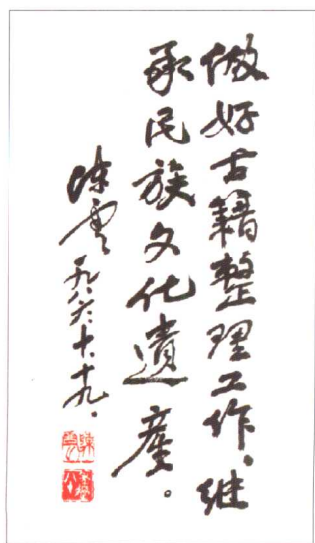 做好古籍整理工作，继
承民族文化遗產。
陈雲一九八六.十.十九.